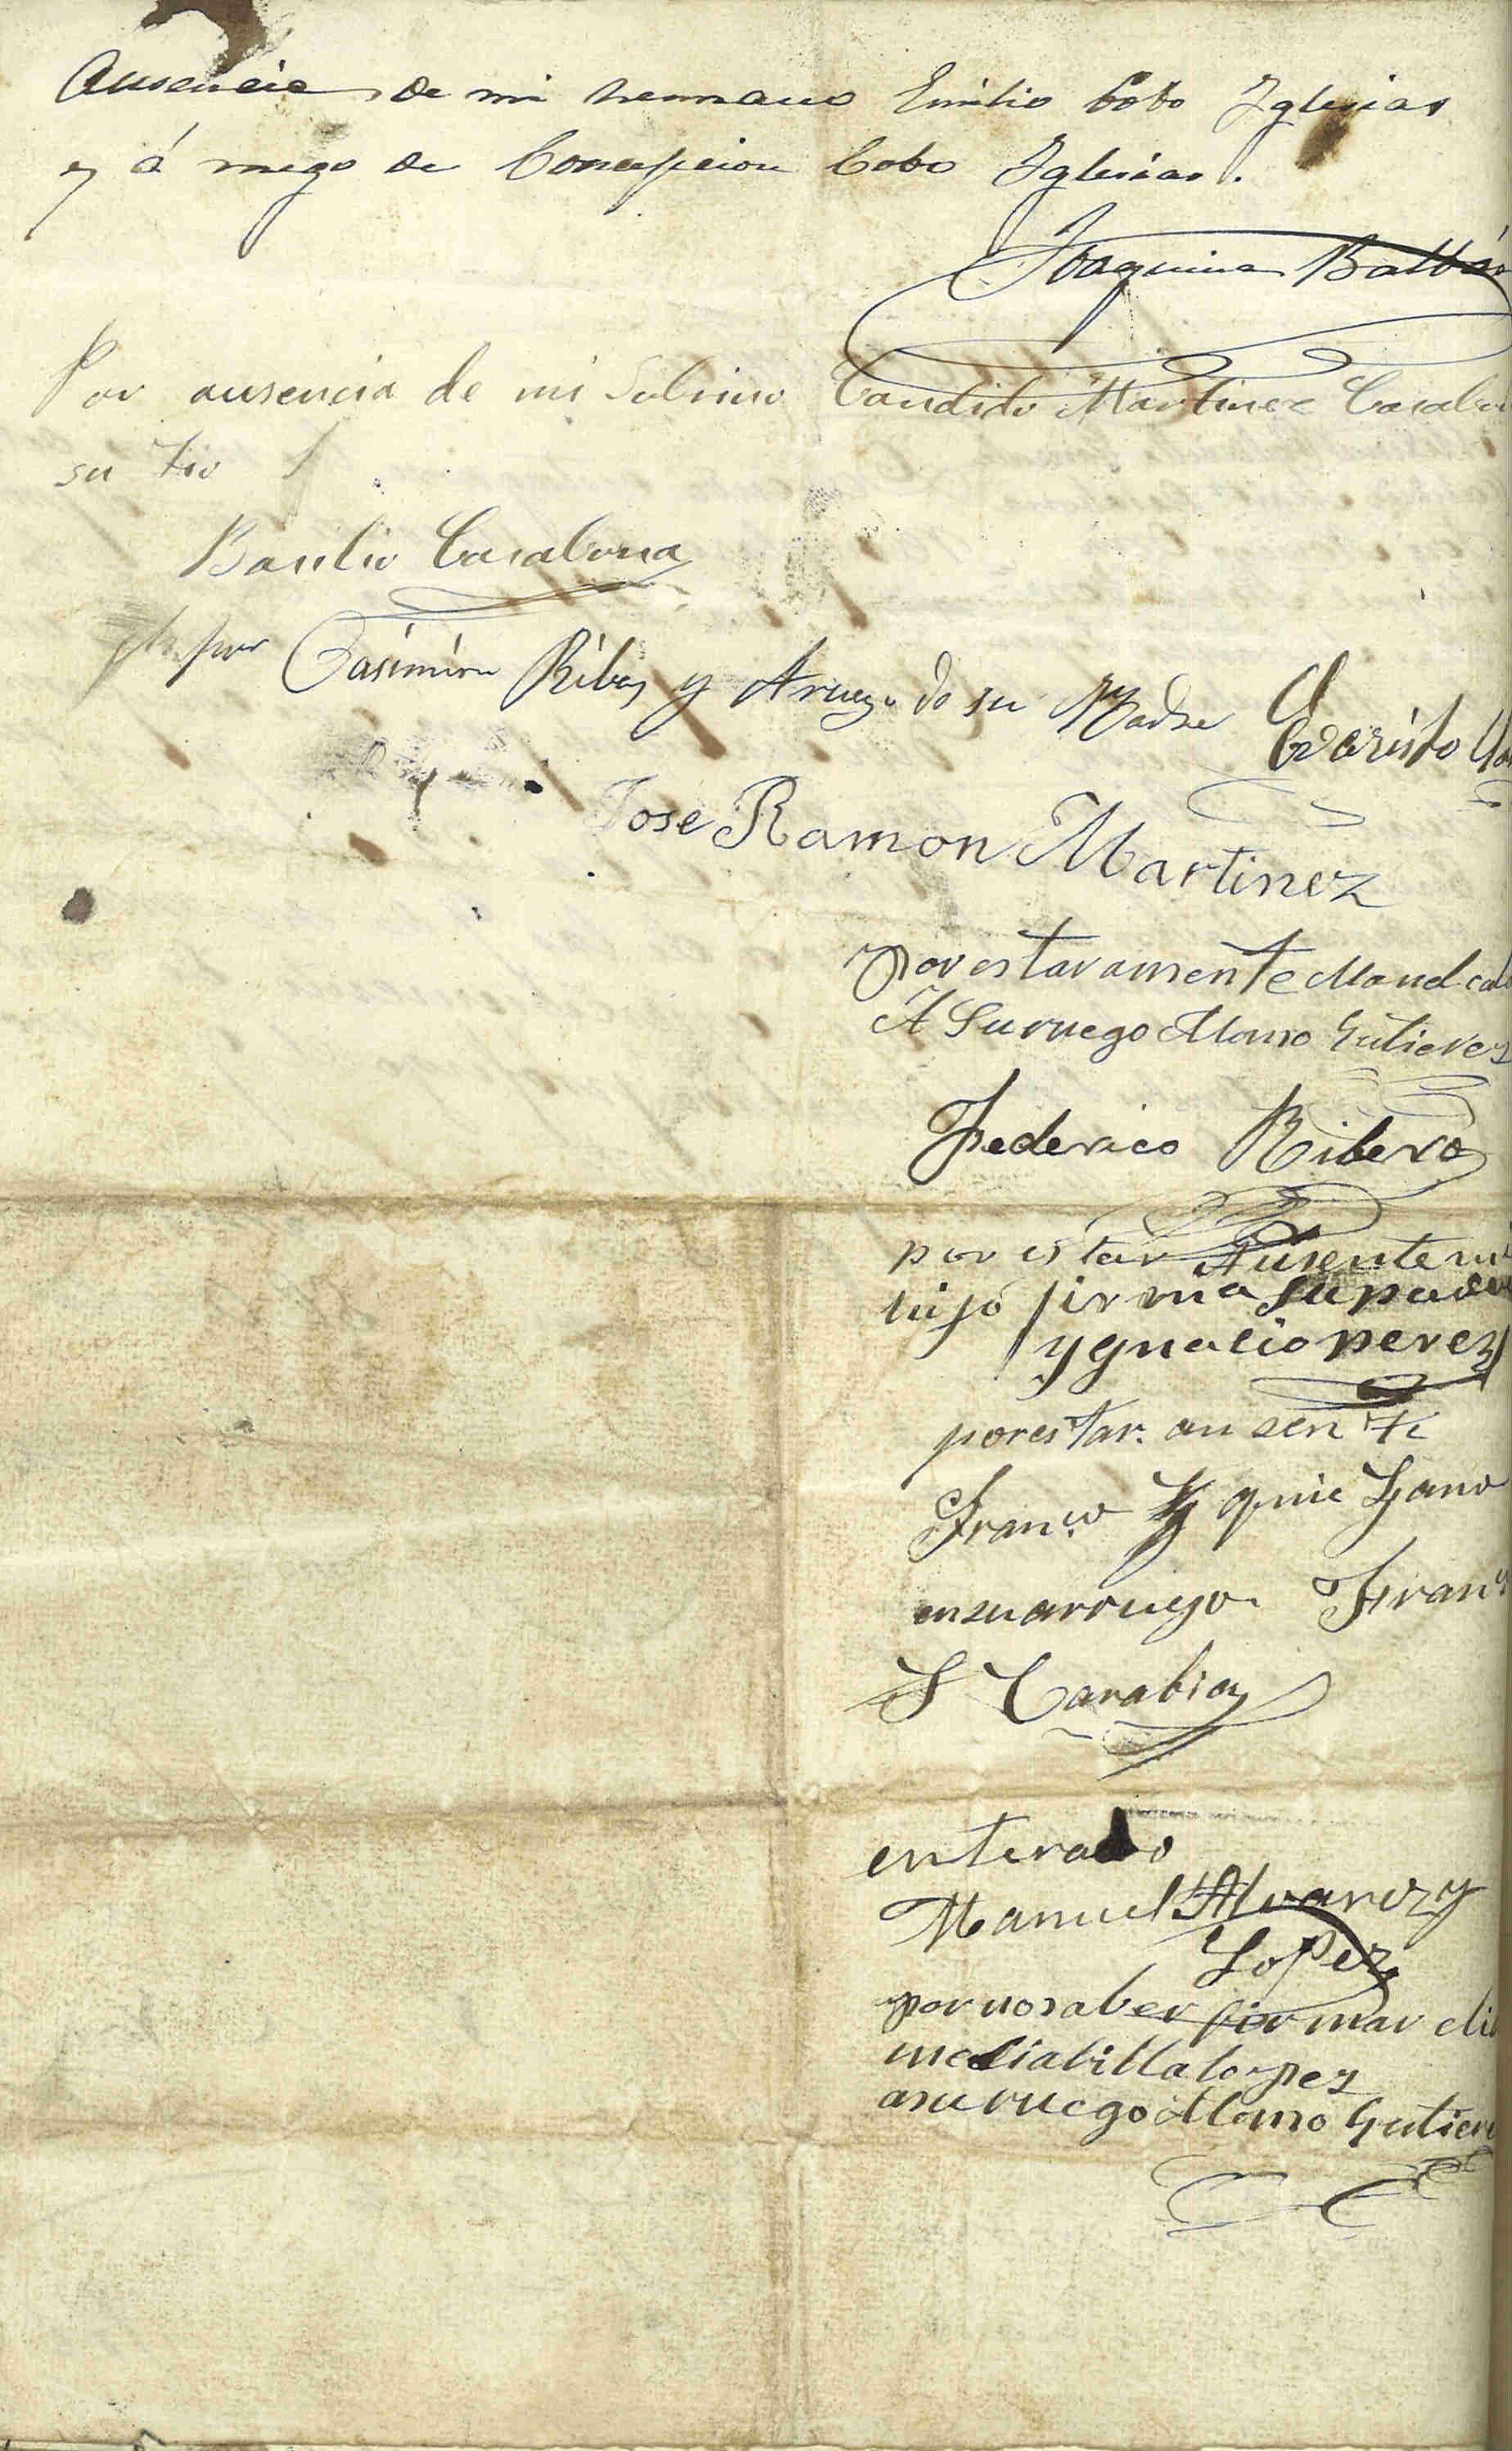 Ausencia de mi hermano Emilio Cobo Iglesias
y á ruego de Concepcion Cobo Iglesias.
Joaquina Balbás
Por ausencia de mi Sobrino Candido Martinez Casabo
su tio
Basilio Casabona
por Casimiro Ribas y Aruego de su Madre Evaristo
Jose Ramon Martinez
por estar ausente Manel
A Su ruego Alonso Gutierez
Federico Ribero
por estar Ausente mi
hijo firma su padre
ygnacio perez
por estar ausente
Franco Y quie Zano
en su arruego Fran
S Carabia
enterado
Manuel Alvarez y
Lopez
por no saber firmar eli
mediabilla lopez
a su ruego Alonso Gutiere